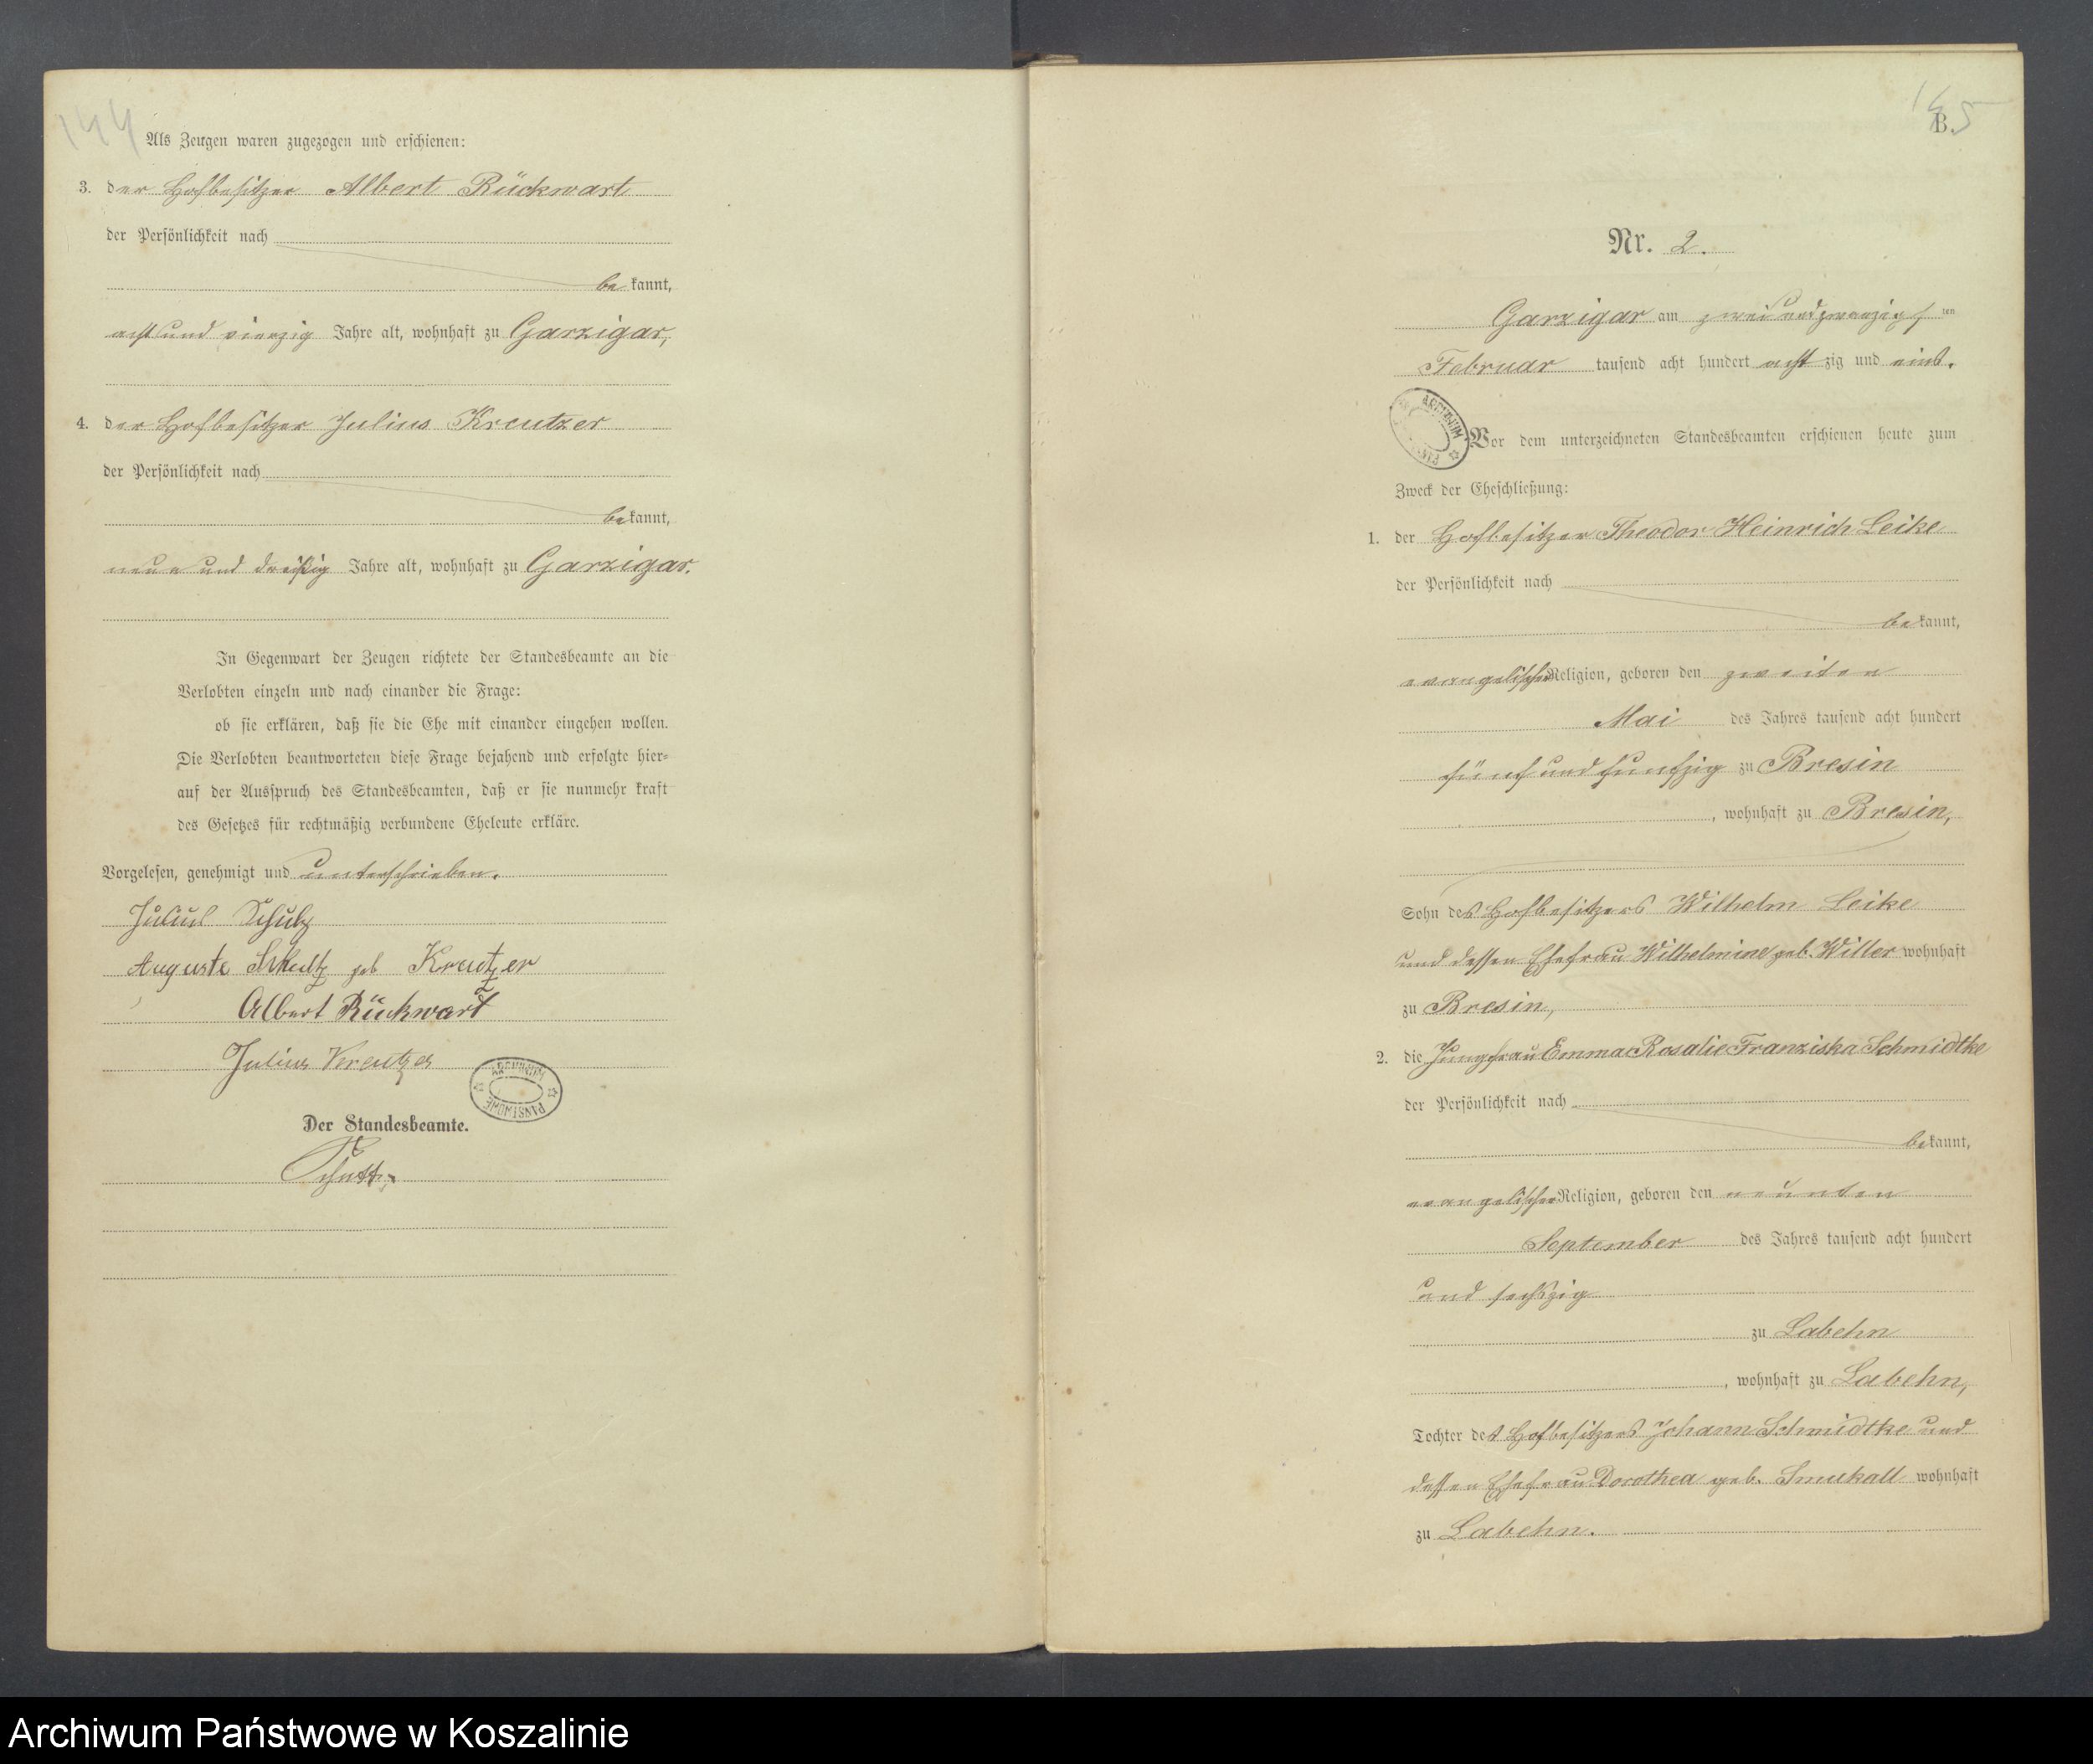 144
Als Zeugen waren zugezogen und erschienen:
3. der Hofbesitzer Albert Rückwart
der Persönlichkeit nach
bekannt,
acht und vierzig Jahre alt, wohnhaft zu Garzigar,
4. der Hofbesitzer Julius Kreutzer
der Persönlichkeit nach
bekannt,
neun und dreißig Jahre alt, wohnhaft zu Garzigar.
In Gegenwart der Zeugen richtete der Standesbeamte an die
Verlobten einzeln und nach einander die Frage:
ob sie erklären, daß sie die Ehe mit einander eingehen wollen.
Die Verlobten beantworteten diese Frage bejahend und erfolgte hier-
auf der Ausspruch des Standesbeamten, daß er sie nunmehr kraft
des Gesetzes für rechtmäßig verbundene Eheleute erkläre.
Vorgelesen, genehmigt und unterschrieben.
Julius Schulz
Auguste Schultz geb Kreutzer
Albert Rückwart
Julius Kreutzer
ARCHIWUM PAŃSTWOWE
Der Standesbeamte.
B.
Nr. 2.
Garzigar am zwei und zwanzigsten
Februar tausend acht hundert achtzig und eins.
ARCHIWUM
Vor dem unterzeichneten Standesbeamten erschienen heute zum
Zweck der Eheschließung:
1. der Hofbesitzer Theodor Heinrich Leike
der Persönlichkeit nach
bekannt,
evangelischer Religion, geboren den zweiten
Mai des Jahres tausend acht hundert
fünf und funfzig zu Bresin
, wohnhaft zu Bresin,
Sohn des Hofbesitzers Wilhelm Leike
und dessen Ehefrau Wilhelmine geb. Willer wohnhaft
zu Bresin,
2. die Jungfrau Emma Rosalie Franziska Schmidtke
der Persönlichkeit nach
bekannt,
evangelischer Religion, geboren den neunten
September des Jahres tausend acht hundert
und sechszig
zu Labehn
, wohnhaft zu Labehn,
Tochter des Hofbesitzers Johann Schmidtke und
dessen Ehefrau Dorothea geb. Smukall wohnhaft
zu Labehn.
Archiwum Państwowe w Koszalinie